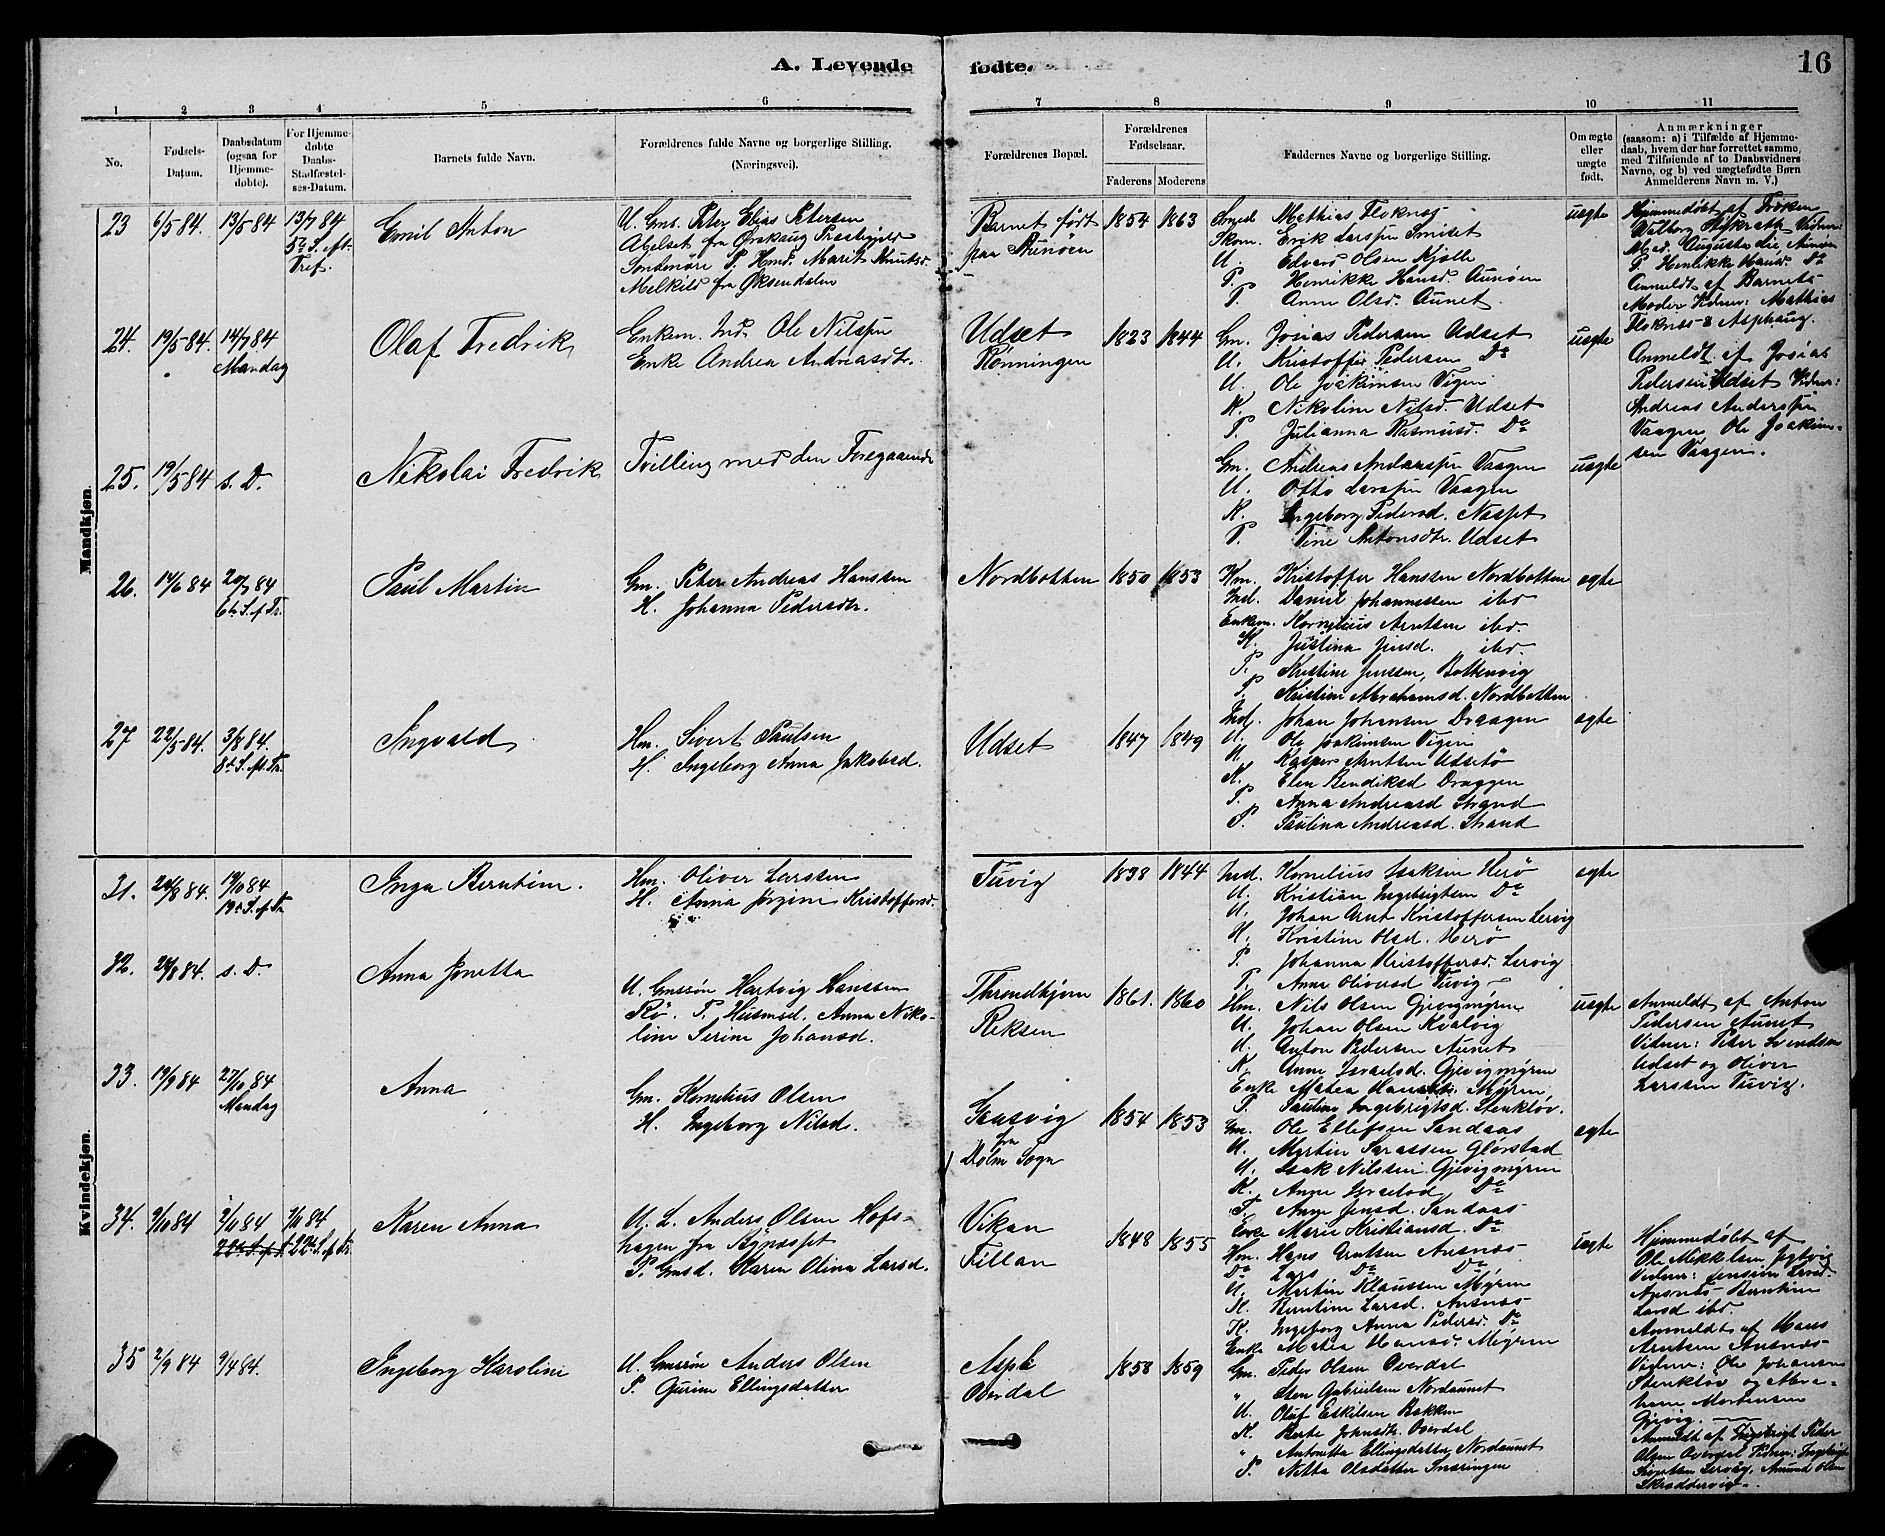 A. Levende fødte.
16
1 2 3 4 5 6 7 8 9 10 11
No.
Fødsels-Datum.
Daabsdatum (ogsaa for Hjemme-døbte).
For Hjemme-døbte Daabs-Stadfæstel-ses-Datum.
Barnets fulde Navn.
Forældrenes fulde Navne og borgerlige Stilling. (Næringsvei).
Forældrenes Bopæl.
Forældrenes Fødselsaar.
Faderens Moderens
Faddernes Navne og borgerlige Stilling.
Om ægte eller uægte født.
Anmærkninger
(saasom: a) i Tilfælde af Hjemme-
daab, hvem der har forrettet samme,
med Tilføiende af to Daabsvidners
Navne, og b) ved uægtefødte Børn
Anmelderens Navn m. V.)
Mandkjøn.
23 6/5 84. 13/5 84 13/7 84
Emil Anton
U. Gms. Peter Elias Petersen
fra Ørskaug Præstegjeld
Søndmöre P. Hmd. Marit Knutsd.
Melkild fra Øksendalen
Barnet født
paa
1854 1863
Mathias Floknes
Skom. Erik Larssen
U. Edvard Olsen Kjölle
P. Henrikke Hansd. Aunöen
P. Anne Olsd. Aunet
uægte
Hjemmedøbt af Frøken
Anmeldt af Barnets
Moder Vidner: Mathias
Floknes & Asphaug.
24. 19/5 84. 14/7 84
Mandag
Olaf Fredrik
Enkem. Ind. Ole Nilssen
Enke Andrea Andreasdtr.
Udset
Rønningen
1823 1844
Gm. Josias Pedersen Udset
U. Kristoffer Pedersen Do
U. Ole Joakimsen Vigen
K. Nikoline Nilsd. Udset
P. Julianna Rasmusd. Do
uægte
Anmeldt af Josias
Pedersen Udset Vidner:
Andreas Anderssen
Vaagen Ole Joakim-
sen Vaagen.
25. 19/5 84 s. D.
Nikolai Fredrik
Tvilling med den Foregaaende
Gm. Andreas Anderssen Vaagen
U. Otto Larssen Vaagen
K. Ingeborg Pedersd.
P. Tine Antonsdtr. Udset
uægte
26. 14/6 84 20/7 84
6te S. ef. Tr.
Paul Martin
Gm. Peter Andreas Hanssen
H. Johanna Pedersdtr.
Nordbotten
1850 1853
Hm. Kristoffer Hanssen Nordbotten
Ind. Daniel Johannessen ibd
Enkem. Kornelius Arntsen ibd.
H. Justina Jensd. ibd.
P. Kristine Jenssen, Bottenvig
P. Kristine Abrahamsd. Nordbotten
ægte
27 22/5 84. 3/8 84.
8de S. eft. Tr.
Ingvald
Hm. Sivert Paulsen
H. Ingeborg Anna Jakobsd.
Udset
1847 1849
Ind. Johan Johansen Draagen
U. Ole Joakimsen Vigen
U. Kasper Arntsen Udsetö
K. Elen Bendiksd Draggen
P. Anna Andreasd Strand
P. Paulina Andreasd. Strand
ægte
Kvindekjøn.
31. 24/8 84. 19/10 84
19de S. ef. Tr.
Inga Berntine.
Hm. Oliver Larssen
H. Anna Jørgine Kristoffersd.
Tuvig
1838 1844
Ind. Kornelius Isaksen Herö
U. Kristian Ingebrigtsen Do
U. Johan Arnt Kristoffersen Lervig
H. Kristine Olsd. Herö
P. Johanna Kristoffersd. Lervig
P. Anne Oliversd Tuvig
ægte
32. 24/8 84. s. D.
Anna Jonetta
U. Gmssön Hartvig Hanssen
Rö. P. Husmd. Anna Niko-
line Serine Johansd.
Throndhjem
Reksen
1861. 1860
Hm. Nils Olsen Gjevigmyren
U. Johan Olsen Kvalvig
U. Anton Pedersen Aunet
K. Anne Israelsd. Gjevigmyren
Enke Matea Hansdtr. Myren
P. Pauline Ingebrigtsd. Stenklöv.
uægte
Anmeldt af Anton
Pedersen Aunet
Vidner: Peter Svendsen
Udset og Oliver
Larssen Tuvig.
33. 19/9 84 27/10 84
Mandag
Anna
Gm. Kornelius Olsen
H. Ingeborg Nilsd.
Gaasvig
fra
Dolm Sogn
1854 1853
Gm. Ole Ellefsen Sandaas
U. Martin Larssen Glörstad
U. Isak Nilssen Gjevigmyren
K. Anne Israelsd. Do
P. Anne Jensd. Sandaas
Enke Marie Kristiansd. Do
ægte
34. 9/10 84
22de S. ef. Tr.
Karen Anna
U. L. Anders Olsen Hofs-
hagen fra
P. Gmsd. Karen Olina Larsd.
Vikan
Fillan
1848 1855
Hm. Hans Arntsen Ansnæs
Do Lars Do Do
U. Martin Klaussen Myren
K. Berntine Larsd. Ansnæs
K. Ingeborg Anna Pedersd. Do
Enke Matea Hansd. Myren
uægte
Hjemmedøbt af
Ole Mikkelsen
Vidner:
Ansnæs Berntine
Larsd ibd.
Anmeldt af Hans
Arntsen Ansnæs
Vidner: Ole Johansen
Stenklöv og Abra-
ham Mortensen
Gjevig.
35 2/9 84 9/4 84.
Ingeborg Karoline
U. Gmssön Anders Olsen
P. Gurine Ellingsdatter
Aspli
Overdal
1858 1859
Gm. Peder Olsen Overdal
" Sten Gabrielsen Nordaunet
U. Oluf Eskilsen Bakken
K. Berte Johnsdtr. Overdal
" Antonetta Ellingsdatter Nordaunet
P. Netta Olsdatter Snæringen
Anmeldt af Ingebrigt Peter
Olsen Overdal Vidner: Ingebrigt
Lervåg, Amund Olsen